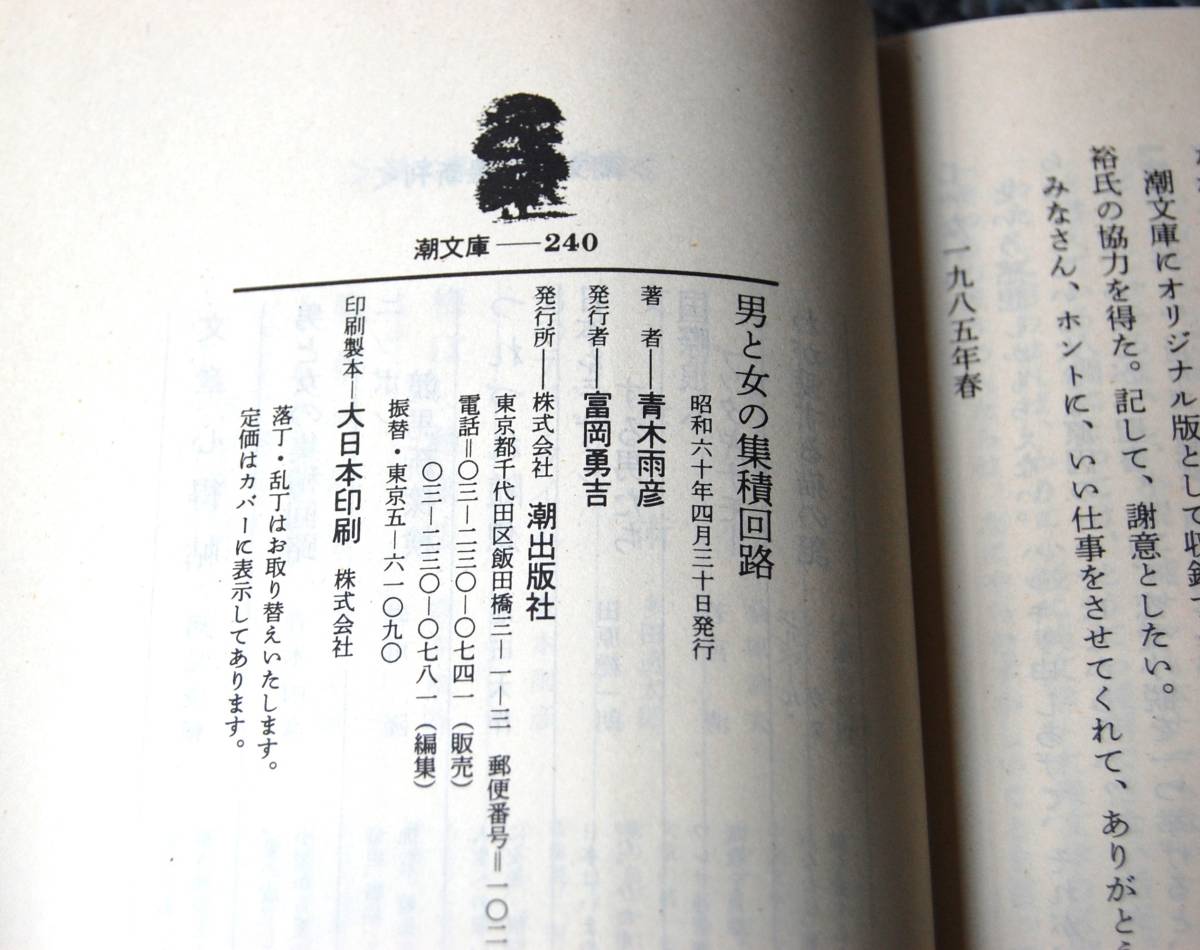 潮文庫にオリジナル版として収録
裕氏の協力を得た。記して、謝意としたい。
みなさん、ホントに、いい仕事をさせてくれて、ありがとう
一九八五年春
潮文庫——240
男と女の集積回路
昭和六十年四月三十日発行
著 者—青木雨彦
発行者—富岡勇吉
発行所—株式会社 潮出版社
東京都千代田区飯田橋三—一—三 郵便番号=一〇二
電話=〇三—二三〇—〇七四一（販売）
〇三—二三〇—〇七八一（編集）
振替・東京五—六一〇九〇
印刷製本—大日本印刷 株式会社
落丁・乱丁はお取り替えいたします。
定価はカバーに表示してあります。